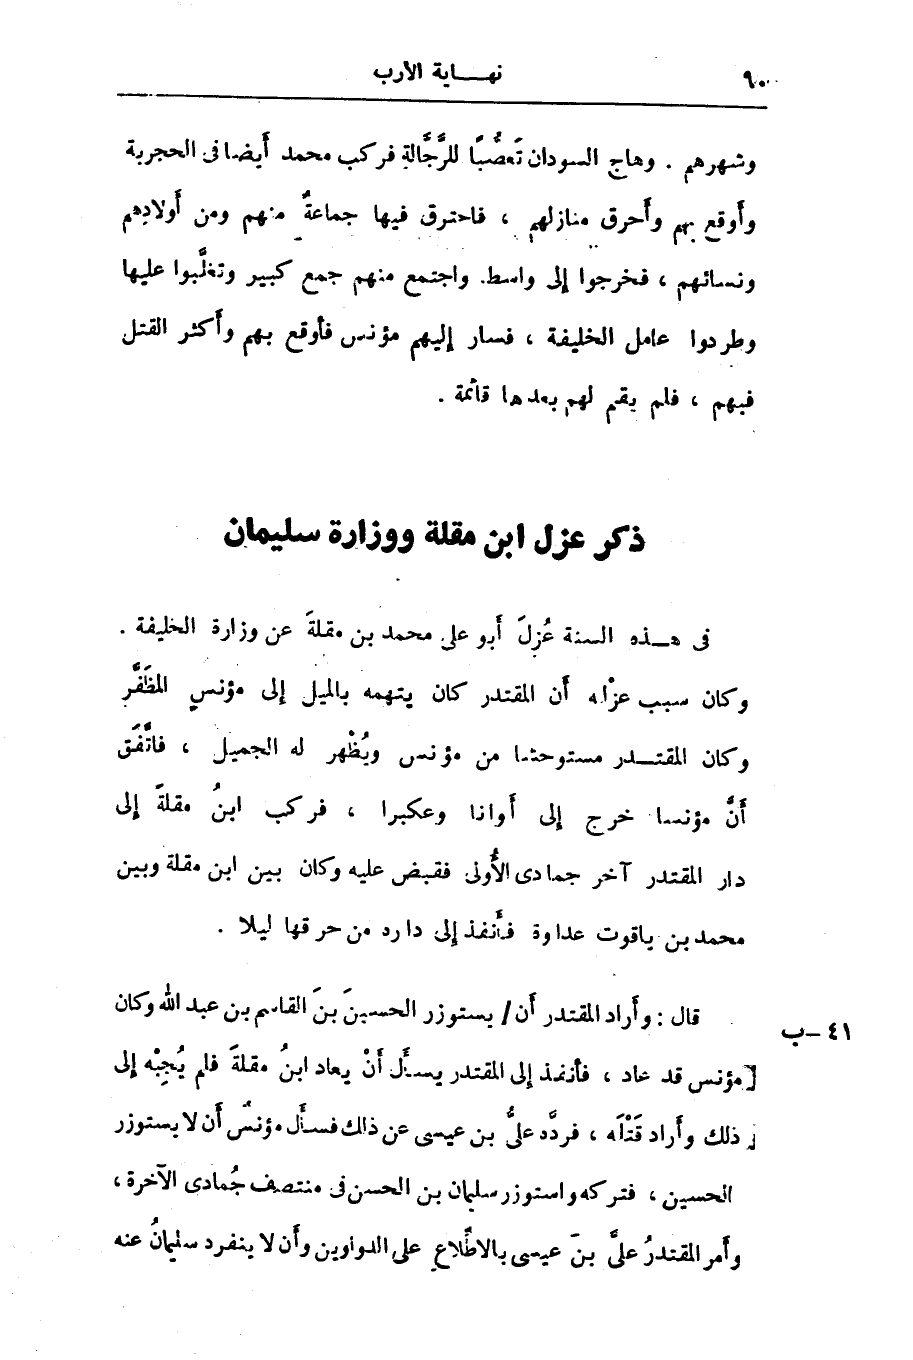 ٩٠ نهــاية الأرب
وشهرهم . وهاج السودان تَعصُّبًا للرَّجَّالة فركب محمد أيضا فى الحجرية
وأوقع بهم وأحرق منازلهم ، فاحترق فيها جماعةٌ منهم ومن أولادهم
ونسائهم ، فخرجوا إلى واسط. واجتمع منهم جمع كبير وتغلَّبوا عليها
وطردوا عامل الخليفة ، فسار إليهم مؤنس فأوقع بهم وأكثر القتل
فيهم ، فلم يقم لهم بعدها قائمة .
ذكر عزل ابن مقلة ووزارة سليمان
فى هــذه السنة عُزلَ أبو على محمد بن مقلةَ عن وزارة الخليفة .
وكان سبب عزْله أن المقتدر كان يتهمه بالميل إلى مؤنسٍ المظَفَّرِ
وكان المقتــدر مستوحشا من مؤنس ويُظْهر له الجميل ، فاتَّفَق
أنَّ مؤنسا خرج إلى أوانا وعكبرا ، فركب ابنُ مقلةَ إلى
دار المقتدر آخر جمادى الأُولى فقبض عليه وكان بين ابن مقلة وبين
محمد بن ياقوت عداوة فأنفذ إلى داره من حرقها ليلا .
قال : وأراد المقتدر أن / يستوزر الحسينَ بنَ القاسم بن عبد الله وكان
٤١ – ب
[مؤنس قد عاد ، فأنفذ إلى المقتدر يسأل أنْ يعاد ابنُ مقلةَ فلم يُجِبْه إلى
ذلك وأراد قَتْلَه ، فردَّه علىُّ بن عيسى عن ذلك فسأل مؤنسٌ أن لا يستوزر
الحسين ، فتركه واستوزر سليمان بن الحسن فى منتصف جُمادى الآخرة ،
وأمر المقتدرُ علىَّ بنَ عيسى بالاطِّلاعِ على الدواوين وأن لا ينفرد سليمانُ عنه